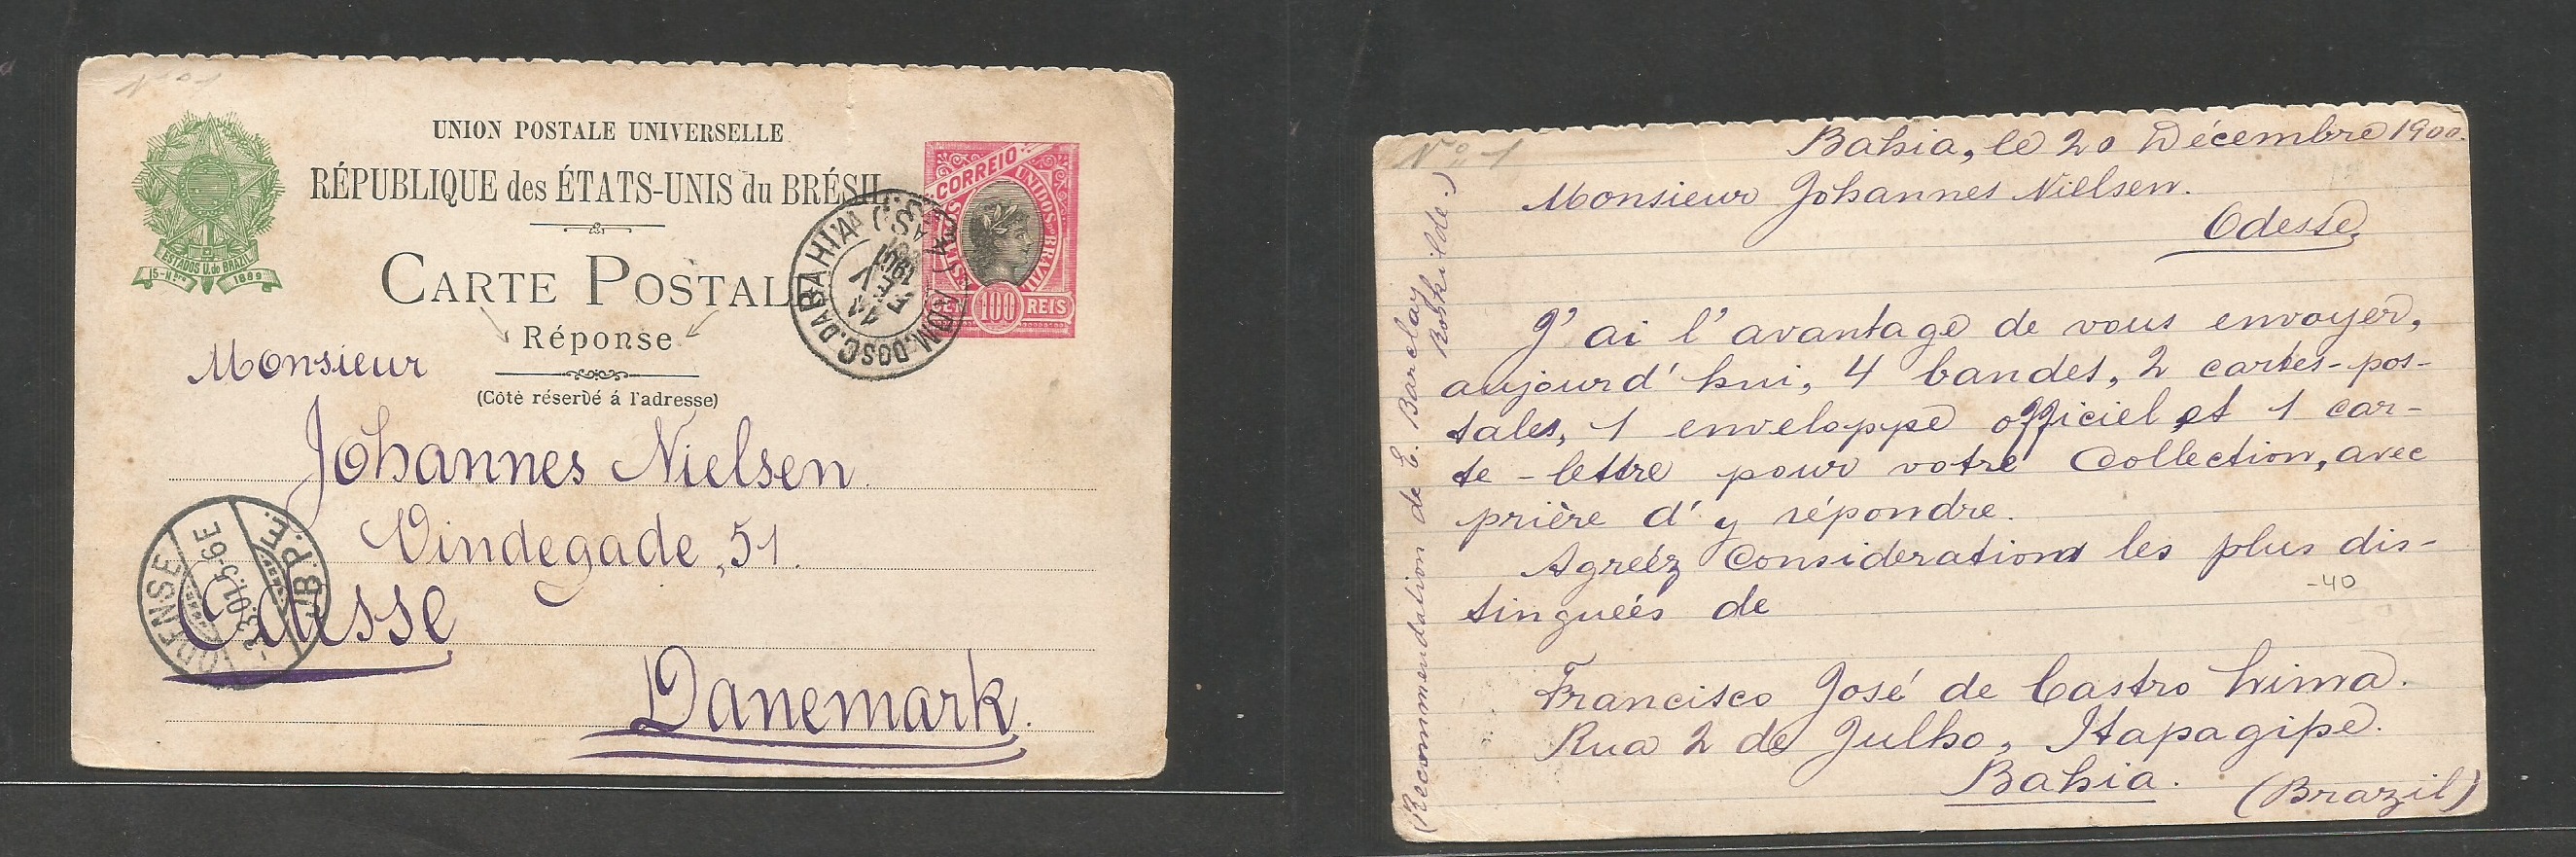 Nº 1
UNION POSTALE UNIVERSELLE
RÉPUBLIQUE des ÉTATS-UNIS du BRÉSIL
CARTE POSTALE
Réponse
(Côté réservé á l'adresse)
ESTADOS U. do BRAZIL
15-Nbro 1889
CORREIO
ESTADOS UNIDOS DO BRAZIL
CEM 100 REIS
DA BAHIA
1901
Monsieur
Johannes Nielsen
Vindegade, 51.
Odesse
Danemark.
ODENSE
3.01.5-6E
JB.P.E.
Nº 1
Bahia, le 20 Décembre 1900.
Monsieur Johannes Nielsen.
Odesse,
J'ai l'avantage de vous envoyer,
aujourd'hui, 4 bandes, 2 cartes-pos-
tales, 1 enveloppe officiel et 1 car-
te-lettre pour votre Collection, avec
prière d'y répondre.
Agreéz Considerations les plus dis-
tingueés de
-40
Francisco José de Castro Lima.
Rua 2 de Julho, Itapagipe.
Bahia. (Brazil)
(Recommendation de E. Barclay
Roskilde.)